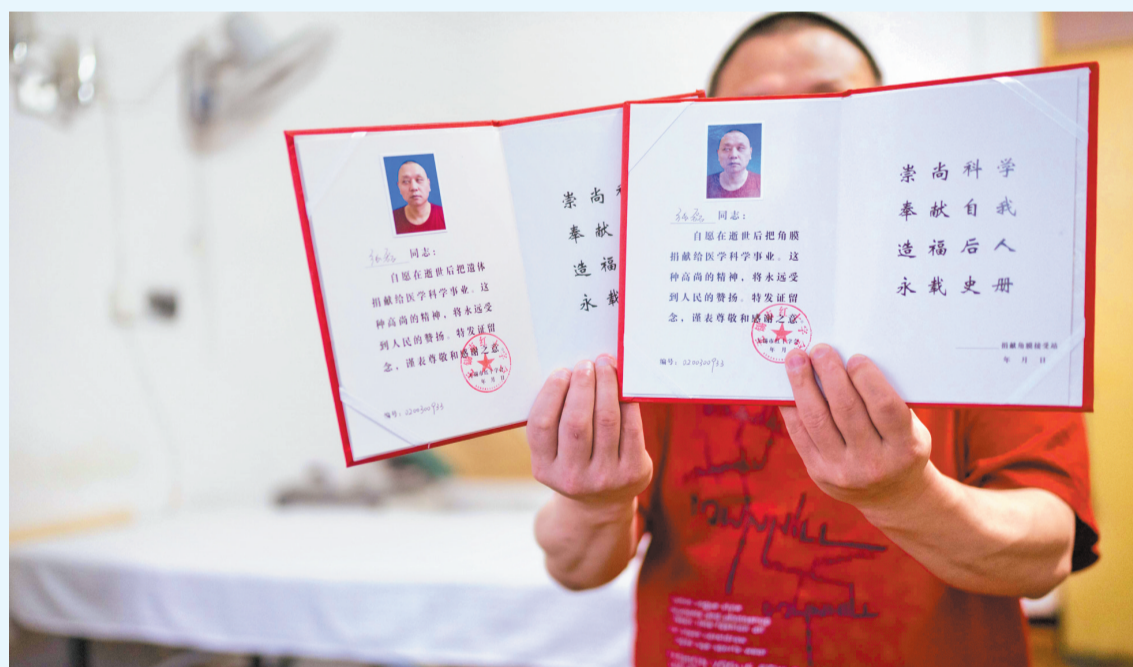 同志：
自愿在逝世后把遗体
捐献给医学科学事业。这
种高尚的精神，将永远受
到人民的赞扬。特发证留
念，谨表尊敬和感谢之意
年 月 日
编号：0200300933
崇尚
奉献
造福
永载
同志：
自愿在逝世后把角膜
捐献给医学科学事业。这
种高尚的精神，将永远受
到人民的赞扬。特发证留
念，谨表尊敬和感谢之意
年 月 日
编号：0200300933
崇尚科学
奉献自我
造福后人
永载史册
捐献角膜接受站
年 月 日